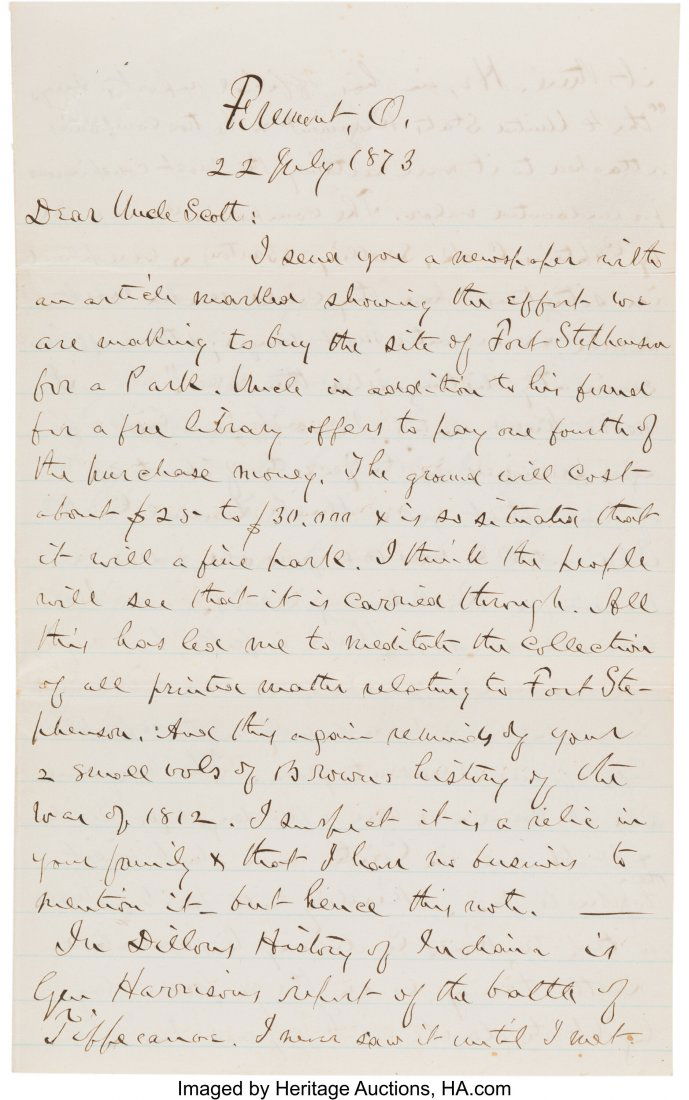 Fremont, O.
22 July 1873
Dear Uncle Scott:
I send you a newspaper with
an article marked showing the effort we
are making to buy the site of Fort Stephenson
for a Park. Uncle in addition to his fund
for a free library offers to pay one fourth of
the purchase money. The ground will cost
about $25 to $30,000 & is so situated that
it will a fine park. I think the people
will see that it is carried through. All
this has led me to meditate the collection
of all printed matter relating to Fort Ste-
phenson. And this again reminds of your
2 small vols of Browns history of the
war of 1812. I suspect it is a relic in
your family & that I have no business to
mention it – but hence this note. —
In Dillons History of Indiana is
Gen Harrisons report of the battle of
Tippecanoe. I never saw it until I met
Imaged by Heritage Auctions, HA.com